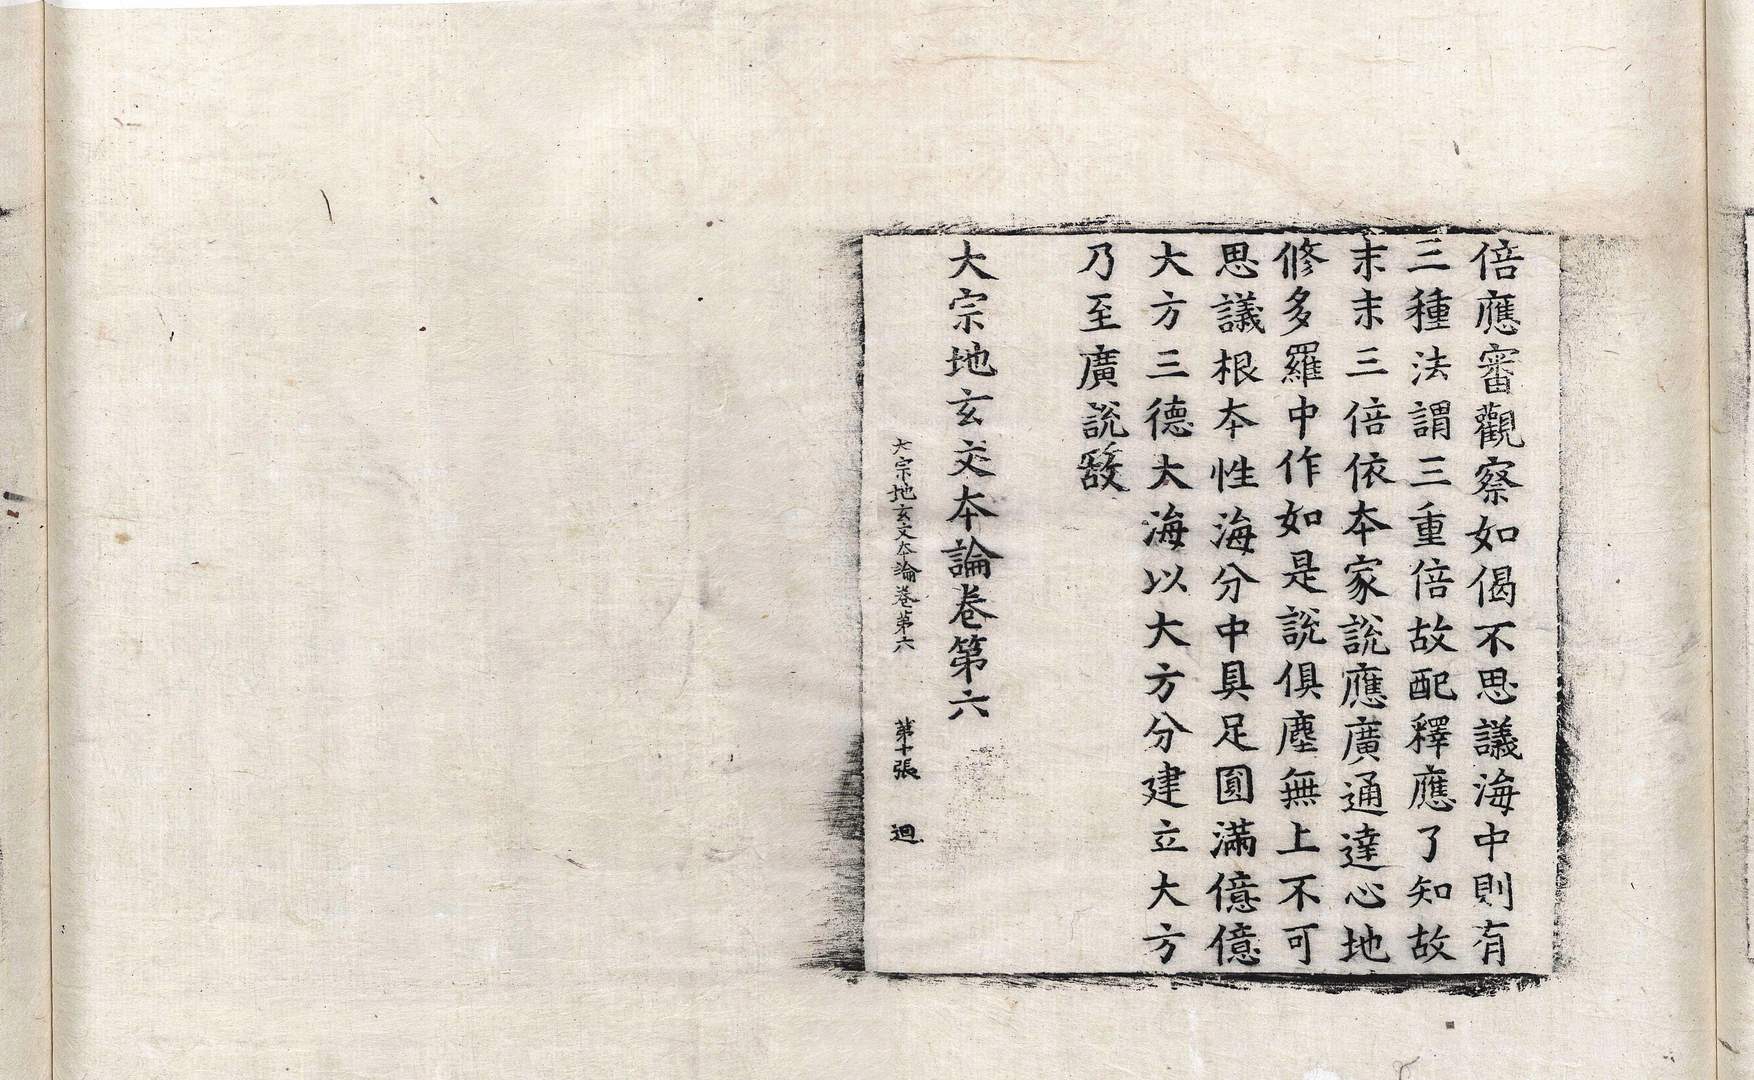 倍應審觀察如偈不思議海中則有
三種法謂三重倍故配釋應了知故
末末三倍依本家說應廣通達心地
修多羅中作如是說俱塵無上不可
思議根本性海分中具足圓滿億億
大方三德大海以大方分建立大方
乃至廣說故
大宗地玄文本論卷第六
大宗地玄文本論卷第六 第十張 迴